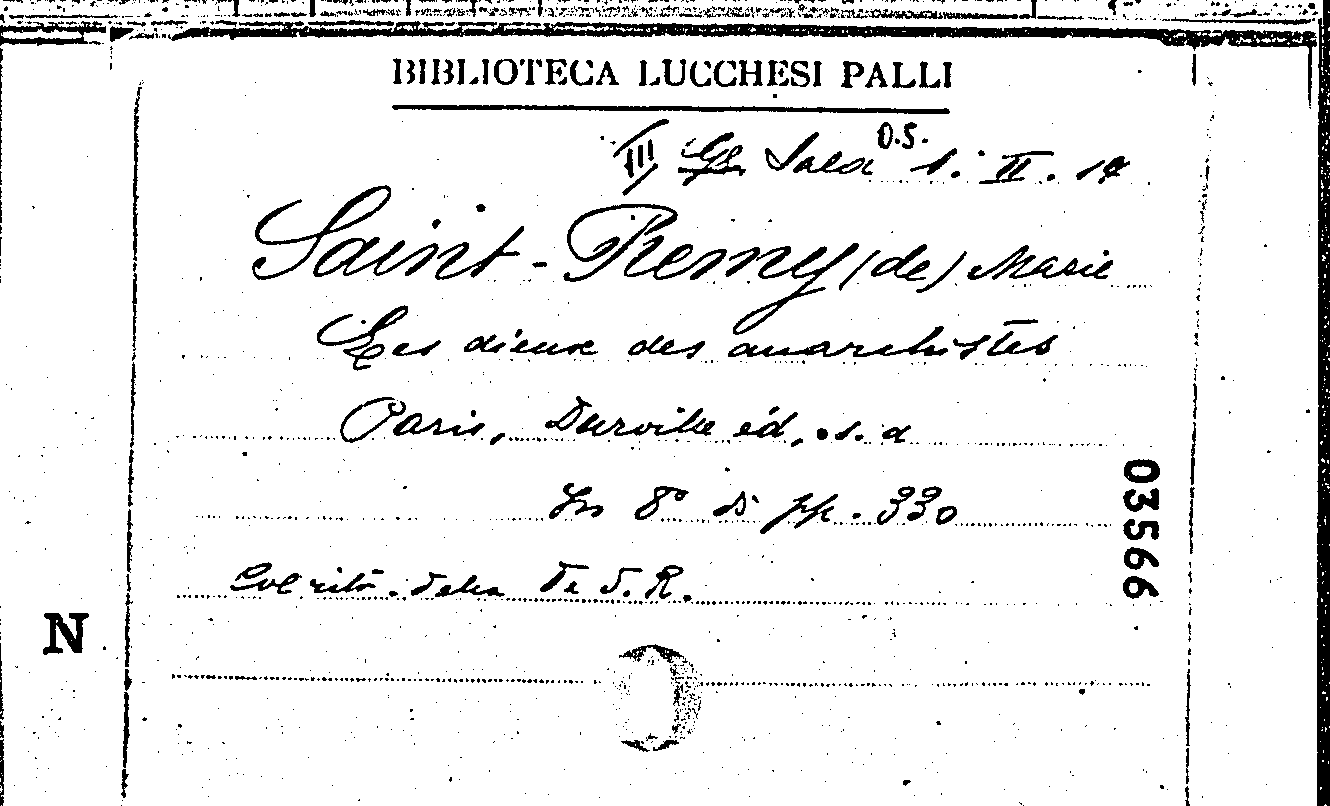 BIBLIOTECA LUCCHESI PALLI
III Sala O.S. 1. II. 17
Saint-Remy (de) Marie
Les dieux des anarchistes
Paris, Durville éd, s. a
In 8° di pp. 330
Col ritr. della De S. R.
03566
N